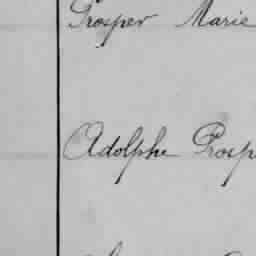 Prosper Marie
Adolphe Prosp